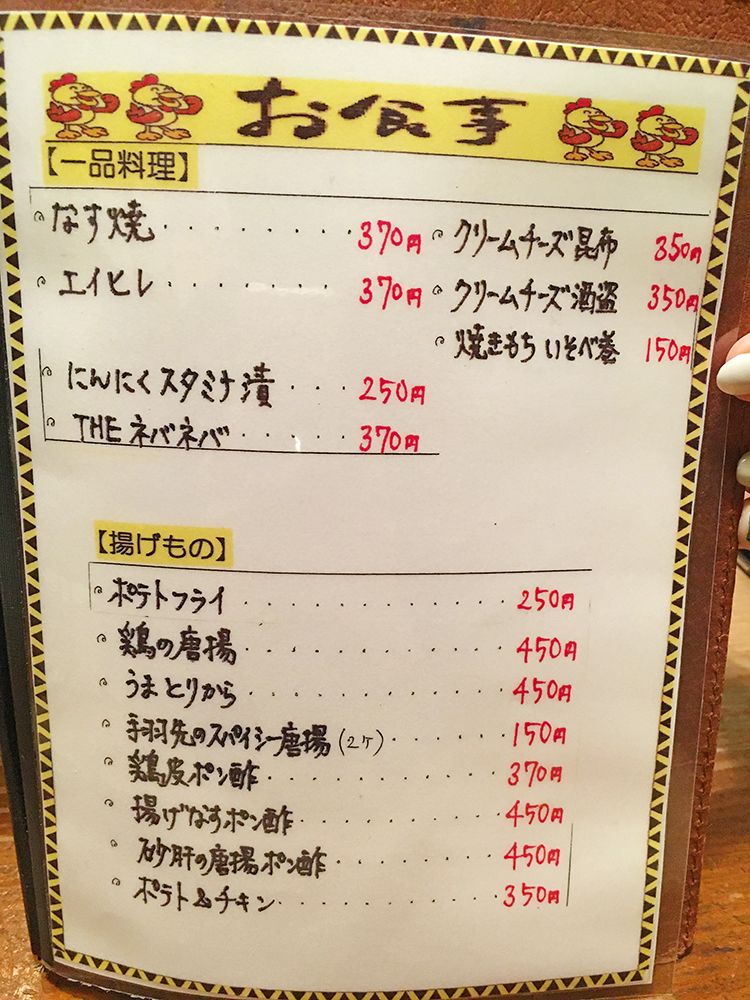 お食事
【一品料理】
なす焼 370円
エイヒレ 370円
にんにくスタミナ漬 250円
THE ネバネバ 370円
クリームチーズ昆布 350円
クリームチーズ酒盗 350円
焼きもち いそべ巻 150円
【揚げもの】
ポテトフライ 250円
鶏の唐揚 450円
うまとりから 450円
手羽先のスパイシー唐揚(2ケ) 150円
鶏皮ポン酢 370円
揚げなすポン酢 450円
砂肝の唐揚ポン酢 450円
ポテト&チキン 350円